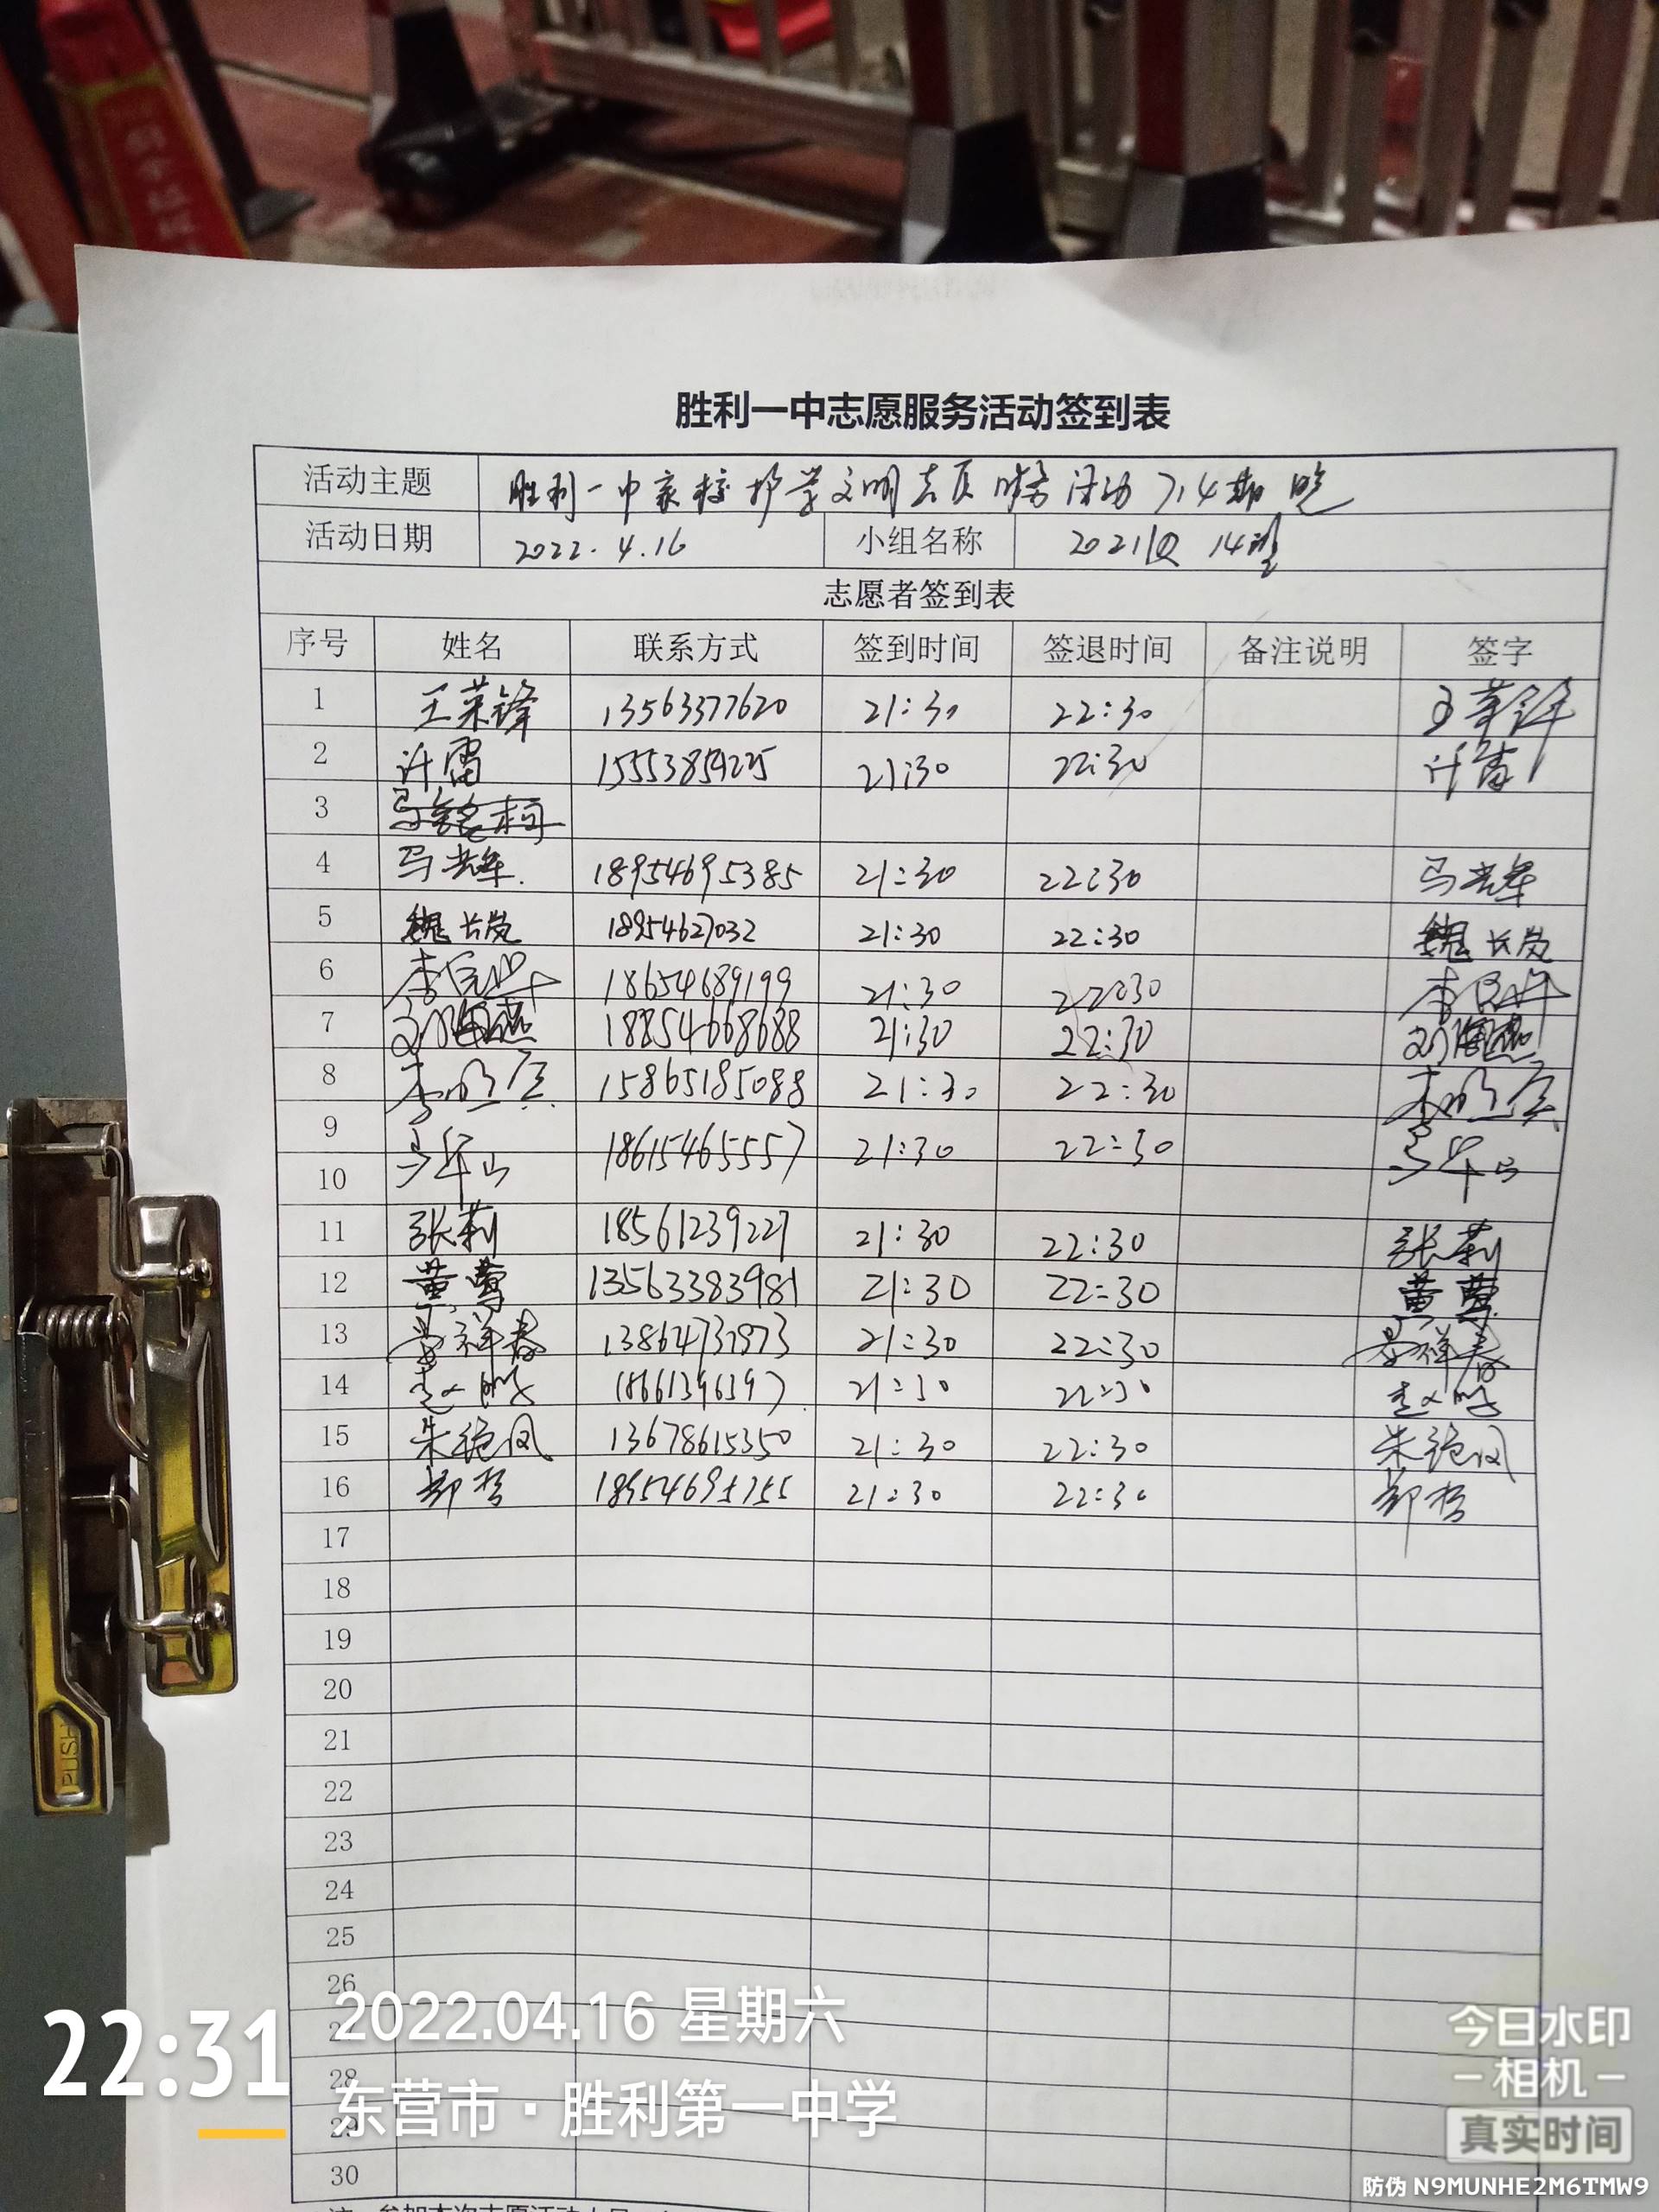 胜利一中志愿服务活动签到表
活动主题 胜利一中家校护学文明志愿服务活动 714期 晚
活动日期 2022.4.16 小组名称 2021级 14班
志愿者签到表
序号 姓名 联系方式 签到时间 签退时间 备注说明 签字
1 王荣锋 13563377620 21:30 22:30 王荣锋
2 许雷 15553859225 21:30 22:30 许雷
3 马铭柯
4 马光辉 18954695385 21:30 22:30 马光辉
5 魏长岚 18954627032 21:30 22:30 魏长岚
6 18654689199 21:30 22:30
7 刘海燕 18854668688 21:30 22:30 刘海燕
8 15865185088 21:30 22:30
9 18615465557 21:30 22:30
10
11 张莉 18561239227 21:30 22:30 张莉
12 黄莺 13563383981 21:30 22:30 黄莺
13 祥春 13864731973 21:30 22:30 祥春
14 18661396397 21:30 22:30
15 朱艳凤 13678615350 21:30 22:30 朱艳凤
16 郑哲 18954695755 21:30 22:30 郑哲
17
18
19
20
21
22
23
24
25
26
27
28
29
30
22:31
2022.04.16 星期六
东营市·胜利第一中学
今日水印
相机
真实时间
防伪 N9MUNHE2M6TMW9
PUSH